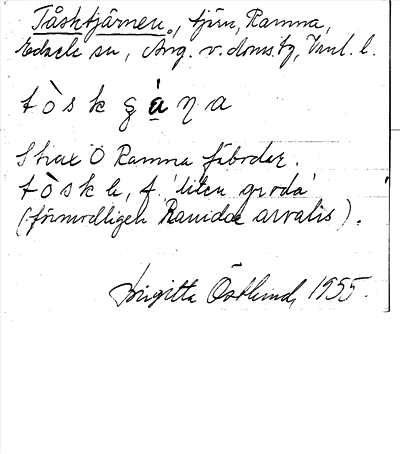 Tåsktjärnen, tjärn, Ramna,
su, Ång. v. doms.tg, Vnl. l.
t ò s k g á η a
Strax Ö Ramna fäbodar.
t ò s k k, f. 'liten groda'
(förmodligen Ranidae arvalis).
Birgitta Östlund, 1955.